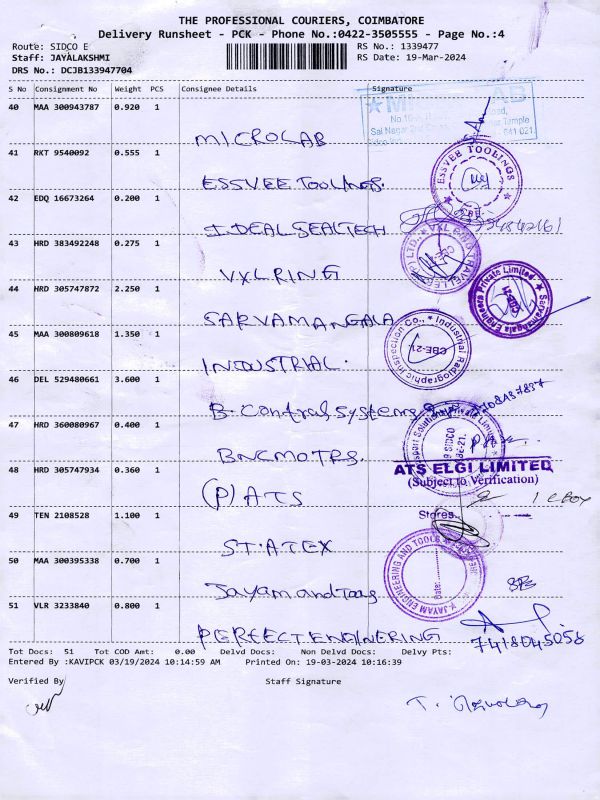 THE PROFESSIONAL COURIERS, COIMBATORE
Delivery Runsheet - PCK - Phone No.:0422-3505555 - Page No.:4
Route: SIDCO E
RS No.: 1339477
Staff: JAYALAKSHMI
RS Date: 19-Mar-2024
DRS No.: DCJB133947704
S No Consignment No Weight PCS Consignee Details Signature
40 MAA 300943787 0.920 1
MICROLAB
41 RKT 9540092 0.555 1
ESSVEE TOOLINGS
ESSVEE TOOLINGS.
42 EDQ 16673264 0.200 1
IDEAL SEALTECH
43 HRD 383492248 0.275 1
VXL RING
44 HRD 305747872 2.250 1
SARVAMANGALA
Sarvamangala Engineers Private Limited
45 MAA 300809618 1.350 1
Industrial Radiographic Inspection Co.,
CBE-21.
INDUSTRIAL.
46 DEL 529480661 3.600 1
B. Control Systems
47 HRD 360080967 0.400 1
BNCMOTRS.
ATS ELGI LIMITED
(Subject to Verification)
48 HRD 305747934 0.360 1
(P) ATS
1 CBOX
Stores
49 TEN 2108528 1.100 1
ST.ATEX
50 MAA 300395338 0.700 1
JAYAM ENGINEERING AND TOOLS
Date:
Jayam and Tools
51 VLR 3233840 0.800 1
PERFECT ENGINERING
7418045058
Tot Docs: 51 Tot COD Amt: 0.00 Delvd Docs: Non Delvd Docs: Delvy Pts:
Entered By :KAVIPCK 03/19/2024 10:14:59 AM Printed On: 19-03-2024 10:16:39
Verified By Staff Signature